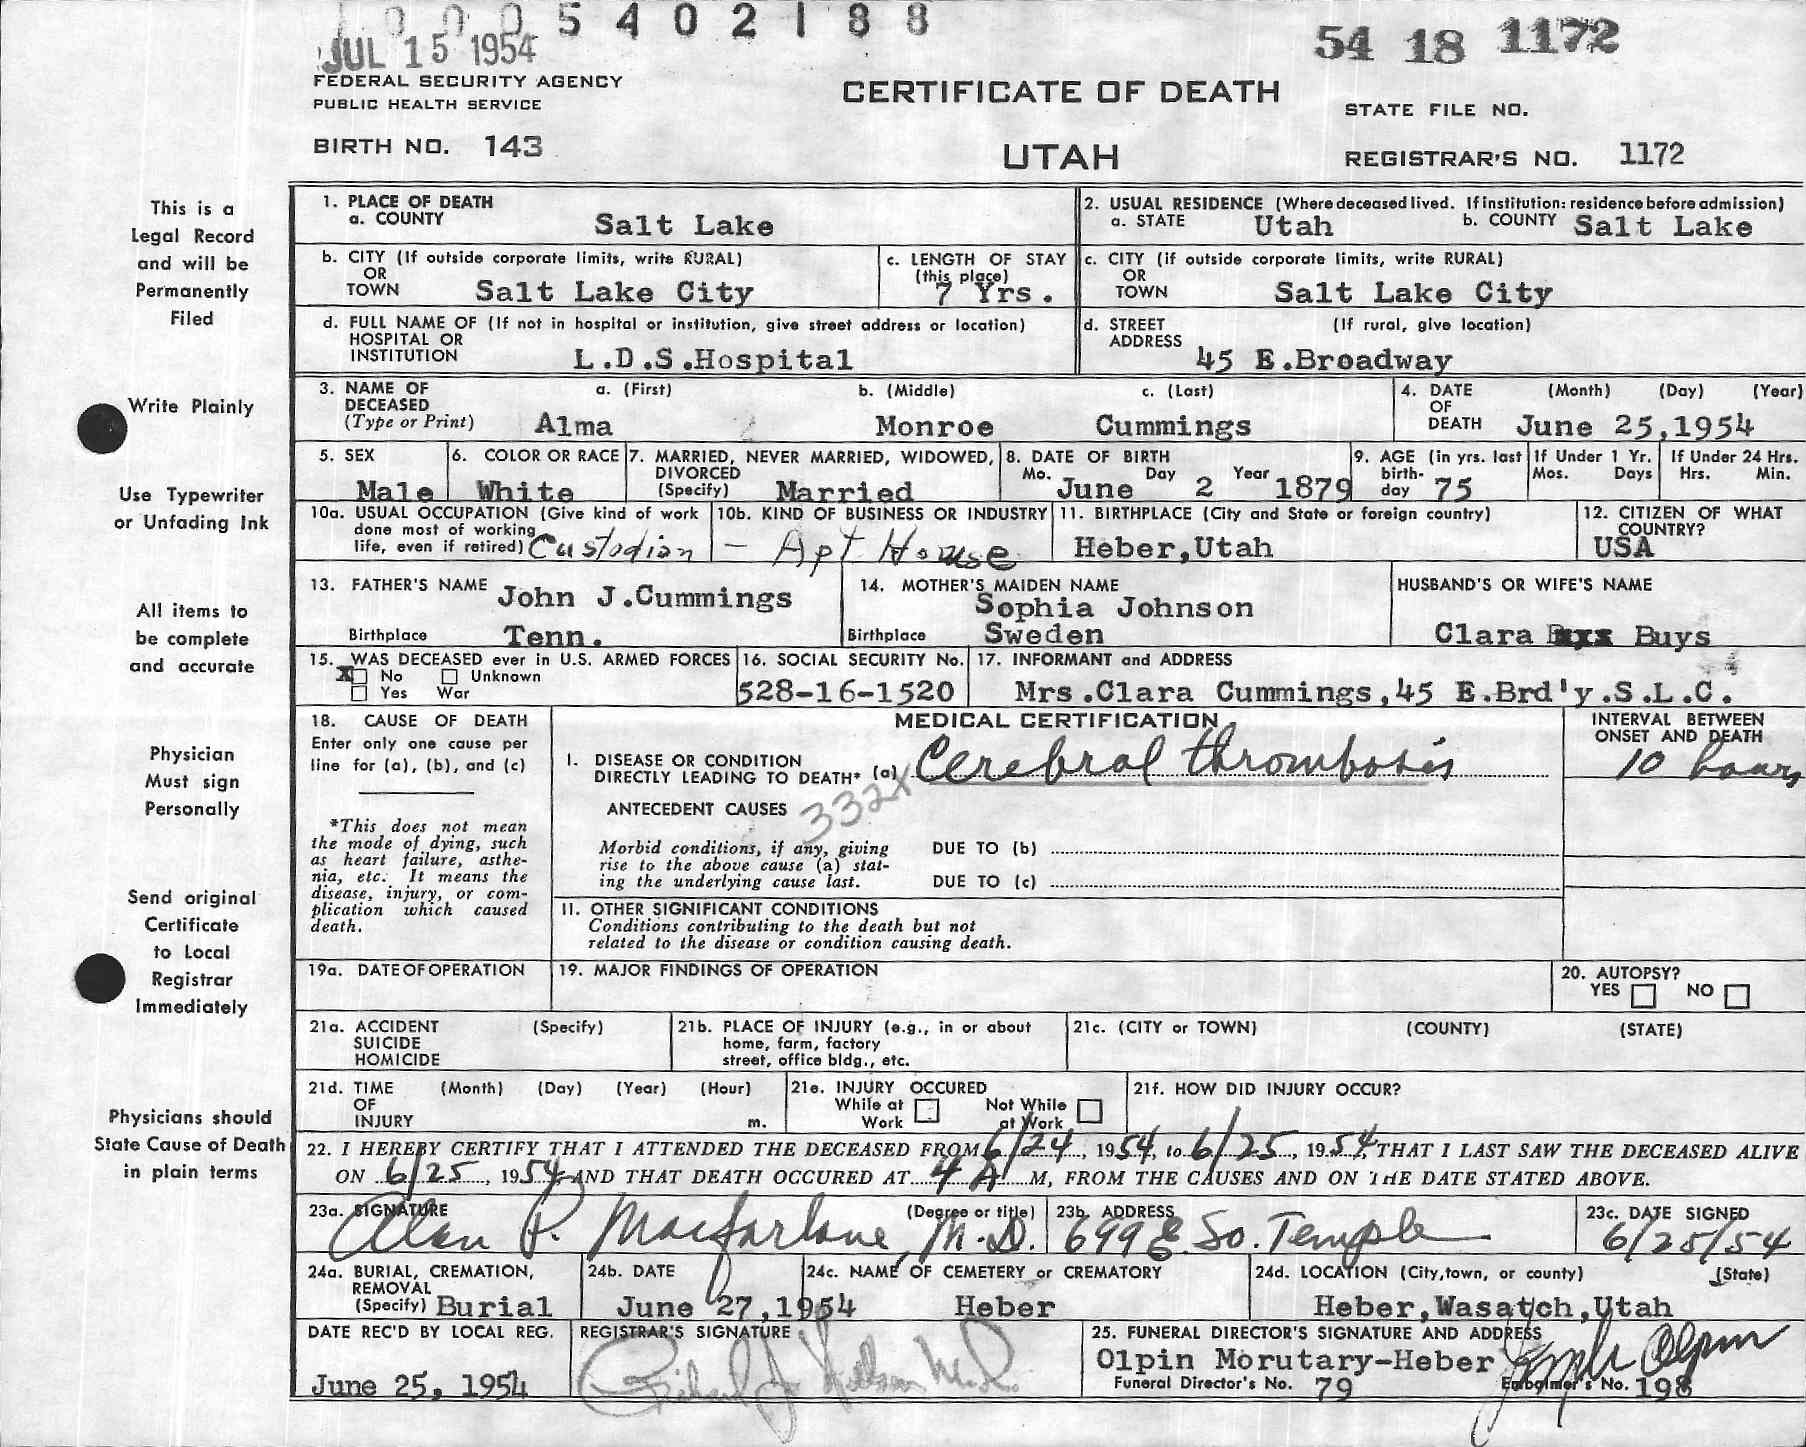 1 0 0 0 5 4 0 2 1 8 8
JUL 15 1954
54 18 1172
FEDERAL SECURITY AGENCY
PUBLIC HEALTH SERVICE
CERTIFICATE OF DEATH
STATE FILE NO.
BIRTH NO. 143
UTAH
REGISTRAR'S NO. 1172
This is a
Legal Record
and will be
Permanently
Filed
Write Plainly
Use Typewriter
or Unfading Ink
All items to
be complete
and accurate
Physician
Must sign
Personally
Send original
Certificate
to Local
Registrar
Immediately
Physicians should
State Cause of Death
in plain terms
1. PLACE OF DEATH
a. COUNTY Salt Lake
2. USUAL RESIDENCE (Where deceased lived. If institution: residence before admission)
a. STATE Utah b. COUNTY Salt Lake
b. CITY (If outside corporate limits, write RURAL)
OR
TOWN Salt Lake City
c. LENGTH OF STAY
(this place)
7 Yrs.
c. CITY (if outside corporate limits, write RURAL)
OR
TOWN Salt Lake City
d. FULL NAME OF (If not in hospital or institution, give street address or location)
HOSPITAL OR
INSTITUTION L.D.S.Hospital
d. STREET (If rural, give location)
ADDRESS 45 E.Broadway
3. NAME OF a. (First) b. (Middle) c. (Last)
DECEASED
(Type or Print) Alma Monroe Cummings
4. DATE (Month) (Day) (Year)
OF
DEATH June 25,1954
5. SEX
Male
6. COLOR OR RACE
White
7. MARRIED, NEVER MARRIED, WIDOWED,
DIVORCED
(Specify) Married
8. DATE OF BIRTH
Mo. June Day 2 Year 1879
9. AGE (in yrs. last
birth-
day 75
If Under 1 Yr.
Mos. Days
If Under 24 Hrs.
Hrs. Min.
10a. USUAL OCCUPATION (Give kind of work
done most of working
life, even if retired) Custodian
10b. KIND OF BUSINESS OR INDUSTRY
- Apt House
11. BIRTHPLACE (City and State or foreign country)
Heber,Utah
12. CITIZEN OF WHAT
COUNTRY?
USA
13. FATHER'S NAME John J.Cummings
Birthplace Tenn.
14. MOTHER'S MAIDEN NAME
Sophia Johnson
Birthplace Sweden
HUSBAND'S OR WIFE'S NAME
Clara Buys
15. WAS DECEASED ever in U.S. ARMED FORCES
X No Unknown
Yes War
16. SOCIAL SECURITY No.
528-16-1520
17. INFORMANT and ADDRESS
Mrs.Clara Cummings,45 E.Brd'y.S.L.C.
18. CAUSE OF DEATH
Enter only one cause per
line for (a), (b), and (c)
*This does not mean
the mode of dying, such
as heart failure, asthe-
nia, etc. It means the
disease, injury, or com-
plication which caused
death.
MEDICAL CERTIFICATION
I. DISEASE OR CONDITION
DIRECTLY LEADING TO DEATH* (a) Cerebral thrombosis
332X
ANTECEDENT CAUSES
Morbid conditions, if any, giving
rise to the above cause (a) stat-
ing the underlying cause last.
DUE TO (b)
DUE TO (c)
II. OTHER SIGNIFICANT CONDITIONS
Conditions contributing to the death but not
related to the disease or condition causing death.
INTERVAL BETWEEN
ONSET AND DEATH
10 hours
19a. DATE OF OPERATION
19. MAJOR FINDINGS OF OPERATION
20. AUTOPSY?
YES NO
21a. ACCIDENT (Specify)
SUICIDE
HOMICIDE
21b. PLACE OF INJURY (e.g., in or about
home, farm, factory
street, office bldg., etc.
21c. (CITY or TOWN) (COUNTY) (STATE)
21d. TIME (Month) (Day) (Year) (Hour)
OF
INJURY m.
21e. INJURY OCCURED
While at Not While
Work at Work
21f. HOW DID INJURY OCCUR?
22. I HEREBY CERTIFY THAT I ATTENDED THE DECEASED FROM 6/24, 1954, to 6/25, 1954, THAT I LAST SAW THE DECEASED ALIVE
ON 6/25, 1954, AND THAT DEATH OCCURED AT 4 A M, FROM THE CAUSES AND ON THE DATE STATED ABOVE.
23a. SIGNATURE (Degree or title)
Alan P. Macfarlane, M.D.
23b. ADDRESS
699 E. So. Temple
23c. DATE SIGNED
6/25/54
24a. BURIAL, CREMATION,
REMOVAL
(Specify) Burial
24b. DATE
June 27,1954
24c. NAME OF CEMETERY or CREMATORY
Heber
24d. LOCATION (City,town, or county) (State)
Heber,Wasatch,Utah
DATE REC'D BY LOCAL REG.
June 25, 1954
REGISTRAR'S SIGNATURE
25. FUNERAL DIRECTOR'S SIGNATURE AND ADDRESS
Olpin Morutary-Heber
Funeral Director's No. 79 Embalmer's No. 198